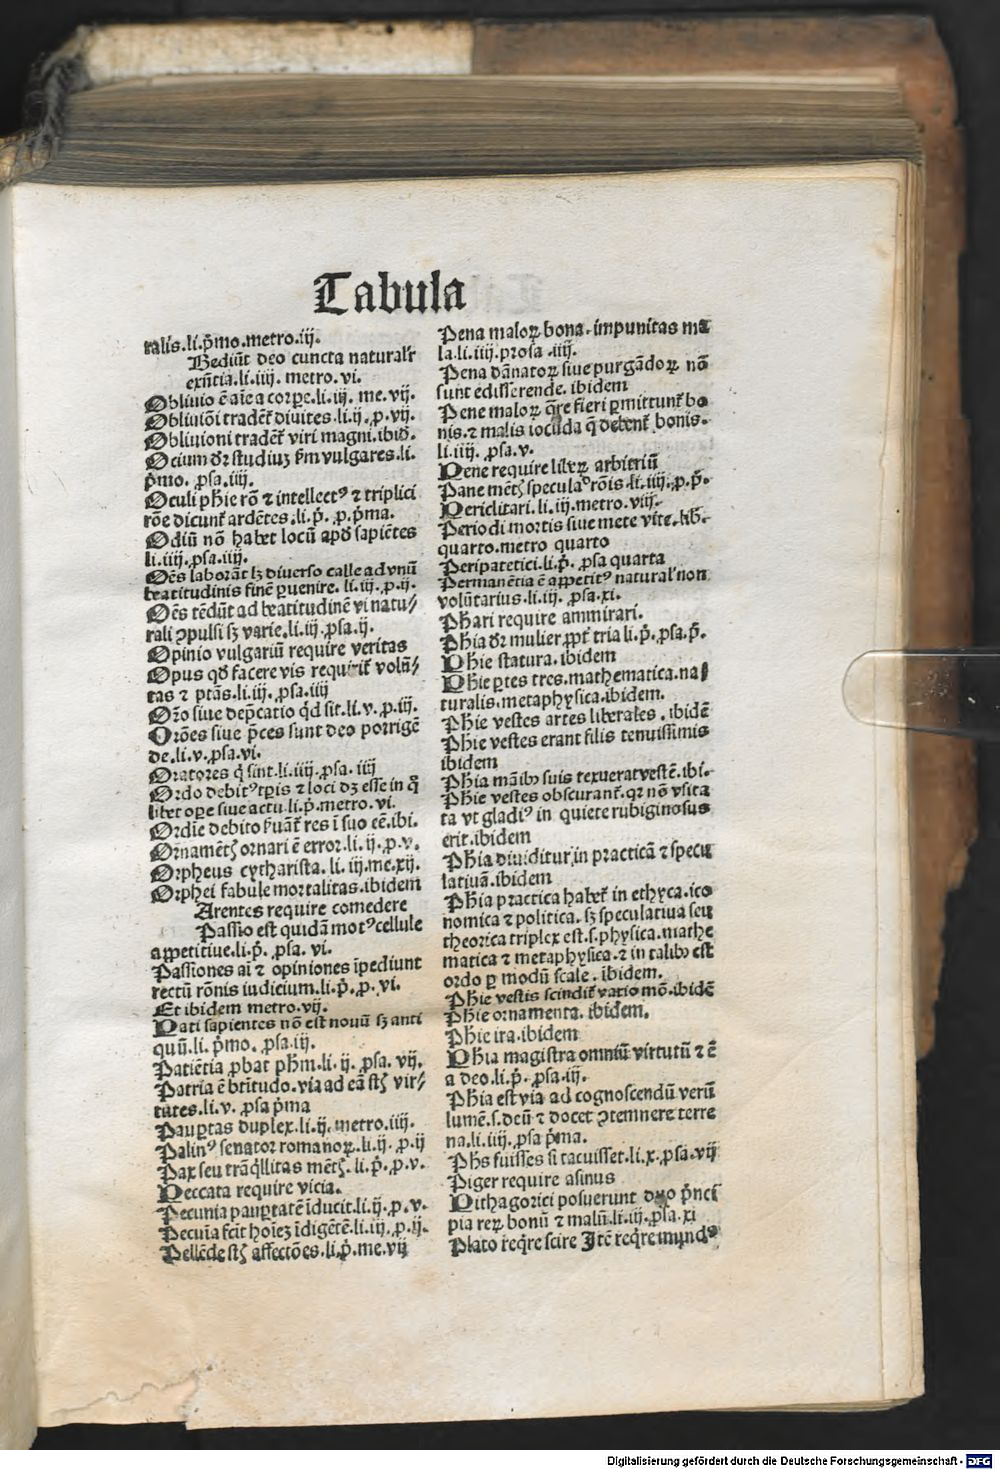 Tabula
ralis.li.p̄mo.metro.iij.
Bediūt deo cuncta naturalr̄
exn̄tia.li.iiij. metro.vi.
Obliuio ē aīe a corpe.li.iij. me.vij.
Obliuiōi tradēt̄ diuites.li.ij.p.vij.
Obliuioni tradēt̄ viri magni.ibid̄.
Ocium dr̄ studiuꝫ fm vulgares.li.
p̄mo. ꝓsa.iiij.
Oculi phīe rō ⁊ intellectꝰ ⁊ triplici
rōe dicunt̄ ardētes.li.p̄. p.p̄ma.
Odiū nō habet locū apd̄ sapiētes
li.iiij.ꝓsa.iiij.
Oēs laborāt lꝫ diuerso calle ad vnū
beatitudinis finē ꝑuenire. li.iij.p.ij.
Oēs tēdūt ad beatitudinē vi natu⸗
rali ꝯpulsi sꝫ varie.li.iij ꝓsa.ij.
Opinio vulgariū require veritas
Opus qd̄ facere vis requirit̄ volū⸗
tas ⁊ ptās.li.iij.ꝓsa.iiij
Or̄o siue dep̄catio qd̄ sit.li.v.p.iij.
Orōes siue p̄ces sunt deo porrigē
de.li.v.ꝓsa.vi.
Oratores q̄ sint.li.iiij.ꝓsa.iiij
Ordo debitꝰ tꝑis ⁊ loci dꝫ esse in q̄
libet oꝑe siue actu.li.p̄.metro.vi.
Ordīe debito ẜuāt̄ res ī suo eē.ibi.
Ornamētꝭ ornari ē error.li.ij.p.v.
Orpheus cytharista. li.iij.me.xij.
Orphei fabule mortalitas.ibidem
Arentes require comedere
Passio est quidā motꝰ cellule
appetitiue.li.p̄. ꝓsa. vi.
Passiones aī ⁊ opiniones īpediunt
rectū rōnis iudicium.li.p̄.p.vi.
Et ibidem metro.vij.
Pati sapientes nō est nouū sꝫ anti
quū.li.p̄mo. ꝓsa.iij.
Patiētia ꝓbat phm̄.li.ij.ꝓsa. vij.
Patria ē btītudo.via ad eā sꝭ vir⸗
tutes.li.v. ꝓsa p̄ma
Pauꝑtas duplex.li.ij.metro.iiij.
Palinꝰ senator romanoꝝ.li.ij.p.ij
Pax seu trāq̄llitas mētꝭ.li.p̄.p.v.
Peccata require vicia.
Pecunia pauꝑtatē īducit.li.ij.p.v.
Pecuīa fcīt hoīeꝫ īdigētē.li.iij.p.ij.
Pellēde sꝭ affectōes.li.p̄.me.vij
Pena maloꝝ bona.impunitas ma
la.li.iiij.prosa.iiij.
Pena dānatoꝝ siue purgādoꝝ nō
sunt edisserende.ibidem
Pene maloꝝ q̄re fieri ꝑmittunt̄ bo
nis.⁊ malis iocūda q̄ debent̄ bonis.
li.iiij.ꝓsa.v.
Pene require liberꝝ arbitriū
Pane mētꝭ specula rōis.li.iiij.p.p̄.
Periclitari.li.iij.metro.viij.
Periodi mortis siue mete vite.lib̄.
quarto.metro quarto
Peripatetici.li.p̄. ꝓsa quarta
Permanētia ē appetitꝰ natural' non
volūtarius.li.iij.ꝓsa.xi.
Phari require ammirari.
Phīa dr̄ mulier ꝓpt̄ tria li.p̄.ꝓsa.p̄.
Phīe statura.ibidem
Phīe ꝑtes tres.mathematica.na⸗
turalis.metaphysica.ibidem.
Phīe vestes artes liberales.ibidē
Phīe vestes erant filis tenuissimis
ibidem
Phīa māibꝫ suis texuerat vestē.ibi.
Phīe vestes obscurant̄.qr nō vsita
ta vt gladiꝰ in quiete rubiginosus
erit.ibidem
Phīa diuiditur in practicā ⁊ specu
latiuā.ibidem
Phīa practica habet̄ in ethyca.ico
nomica ⁊ politica. sꝫ speculatiua seu
theorica triplex est.s.physica.mathe
matica ⁊ metaphysica.⁊ in talibꝫ est
ordo ꝑ modū scale.ibidem.
Phīe vestis scindit̄ vario mō.ibidē
Phīe ornamenta.ibidem.
Phīe ira.ibidem
Phīa magistra omniū virtutū ⁊ ē
a deo.li.p̄.ꝓsa.iij.
Phīa est via ad cognoscendū verū
lumē.s.deū ⁊ docet ꝯtemnere terre
na.li.iiij.ꝓsa p̄ma.
Phs̄ fuisses si tacuisset.li.x.ꝓsa.vij
Piger require asinus
Pithagorici posuerunt duo p̄nci
pia reꝝ bonū ⁊ malū.li.iij.ꝓsa.xi
Plato req̄re scire Itē req̄re mundꝰ
Digitalisierung gefördert durch die Deutsche Forschungsgemeinschaft - DFG